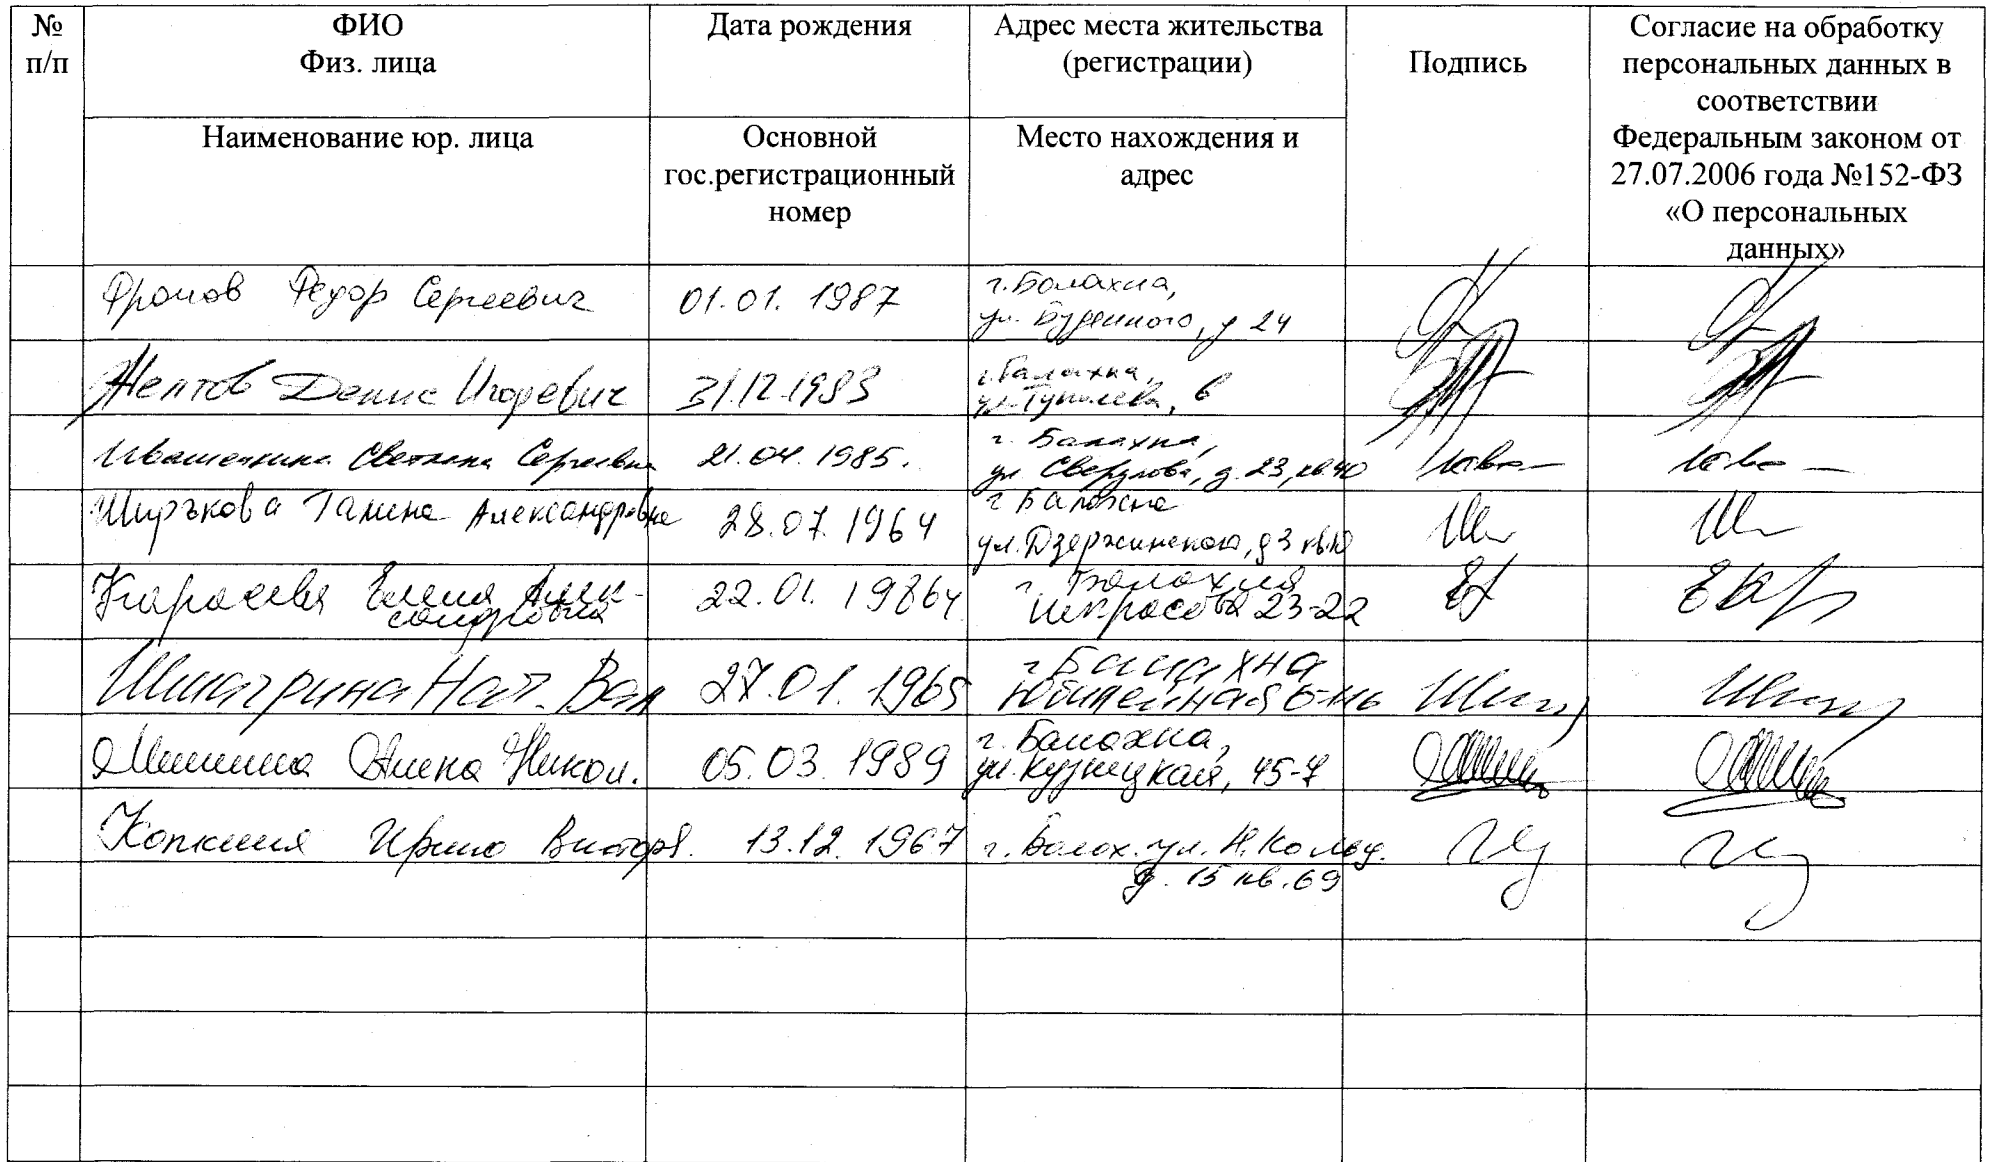 №
п/п
ФИО
Физ. лица
Дата рождения
Адрес места жительства
(регистрации)
Подпись
Согласие на обработку
персональных данных в
соответствии
Федеральным законом от
27.07.2006 года №152-ФЗ
«О персональных
данных»
Наименование юр. лица
Основной
гос.регистрационный
номер
Место нахождения и
адрес
Федор Сергеевич
01.01.1987
г. Балахна,
ул. Буденного, д 24
Денис Игоревич
31.12.1983
г. Балахна,
ул. Туполева, 6
Светлана Сергеевна
21.04.1985.
г. Балахна,
ул Свердлова, д. 23, кв 40
Александровна
28.07.1964
г Балахна
ул. Дзержинского, д 3 кв
Карасева Елена Алек-
сандровна
22.01.
г. Балахна
Некрасова 23-22
Нат. Вал
27.01.1965
г Балахна
Юбилейная
Алена Никол.
05.03.1989
г. Балахна,
ул. Кузнецкая, 45-7
Ирина Виктор.
13.12.1967
г. Балах. ул.
д. 15 кв. 69